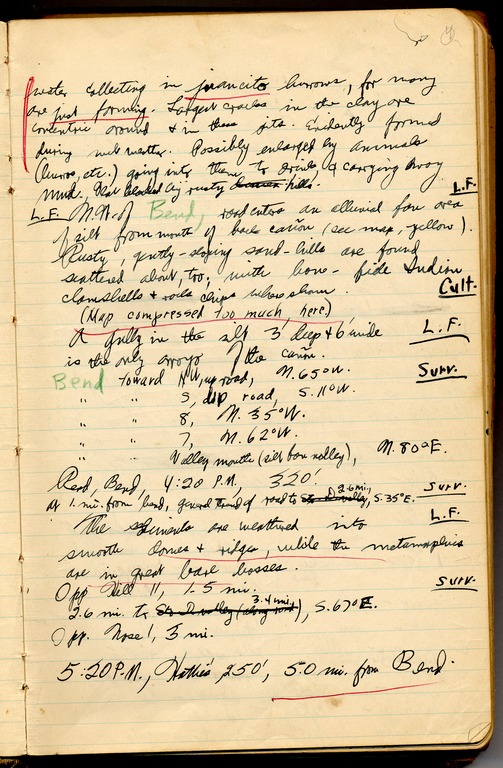 water collecting in juancito burrows, for many
are just forming. Largest cracks in the clay are
concentric around & in these pits. Evidently formed
during wet weather. Possibly enlarged by animals
(burros, etc.) going into them to drink, & carrying away
mud. by rusty hills.
L.F.
L.F. N.W. of Bend, road enters an alluvial fan area
of silt from mouth of bare cañon (see map, yellow).
Rusty, gently-sloping sand-hills are found
scattered about, too, with bona-fide Indian
Cult.
clamshells & chips whereshown.
(Map compressed too much, here.)
A gully in the silt 3' deep & 6' wide
L.F.
is the only arroyo of the cañon.
Bend toward NW, up road, N. 65° W.
Surv.
" " S, dip road, S. 11° W.
" " 8, N. 35° W.
" " 7, N. 62° W.
" " Valley mouth (silt box valley), N. 80° E.
Read, Bend, 4:20 P.M., 320'
At 1. mi. from bend, general trend of road to 2.6 mi., S. 35° E.
Surv.
L.F.
The sediments are weathered into
smooth domes & ridges, while the metamorphics
are in great bare bosses.
Opp. Hill 11, 1.5 mi.
Surv.
2.6 mi. to Str. D valley (along road) 3.4 mi., S. 67° E.
Opp. Nose 1, 3 mi.
5:20 P.M., Hattie's 250', 5.0 mi. from Bend.